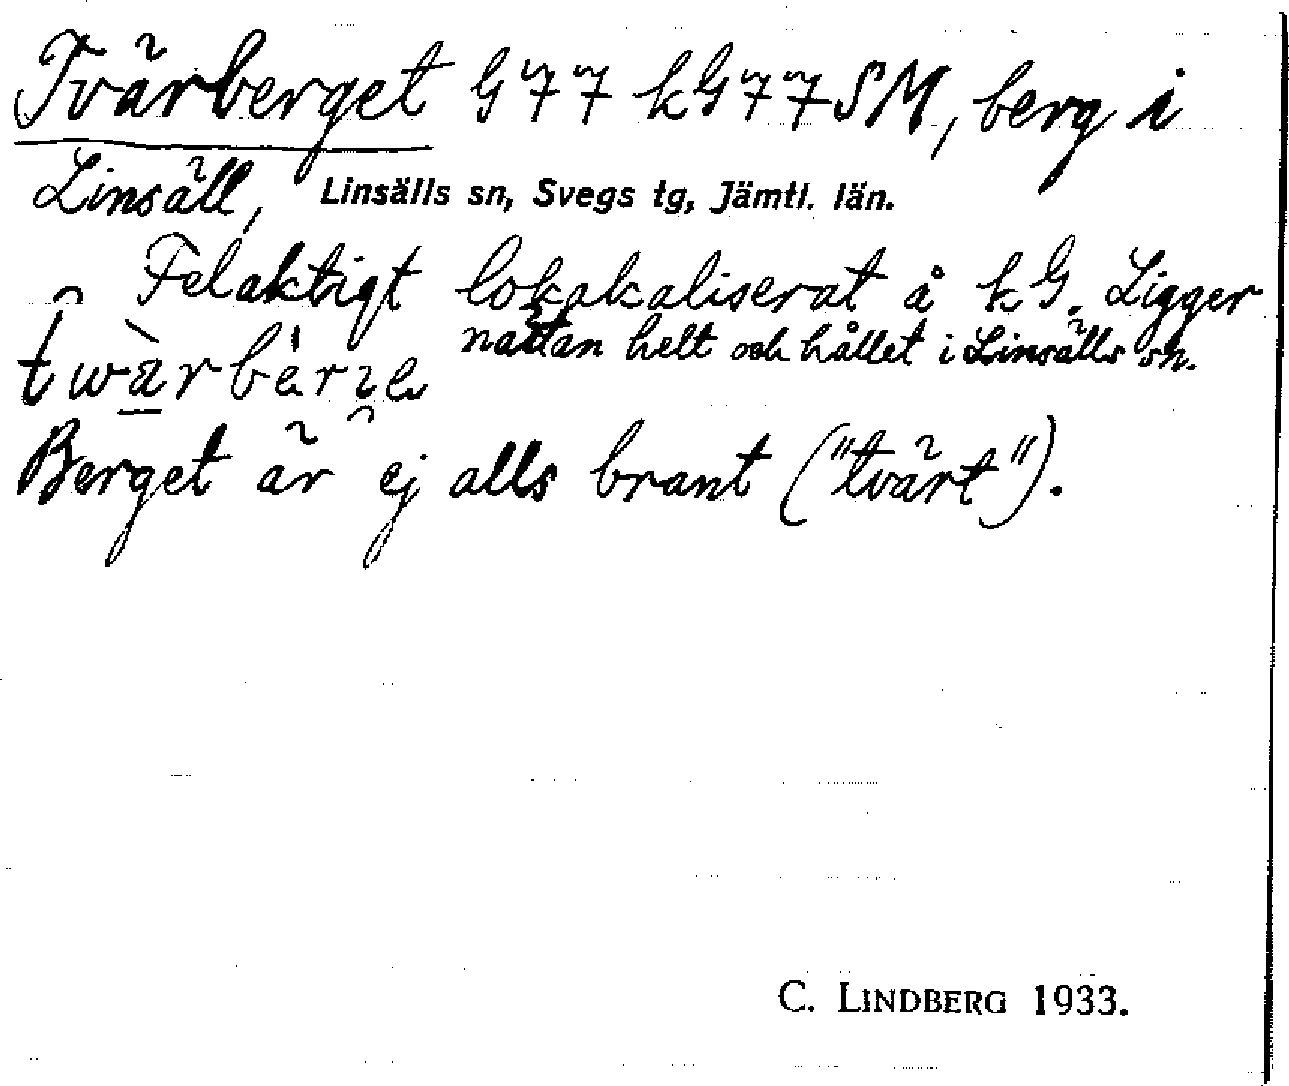 Tvärberget G77 kG77SM, berg i
Linsäll, Linsälls sn, Svegs tg, Jämtl. län.
Felaktigt lokakaliserat å kG. Ligger
nästan helt och hållet i Linsälls sn.
Berget är ej alls brant ("tvärt").
C. LINDBERG 1933.